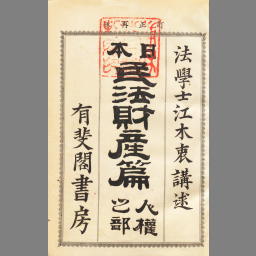 訂正再版
法學士江木衷講述
日本
民法財産篇
人權
之部
有斐閣書房